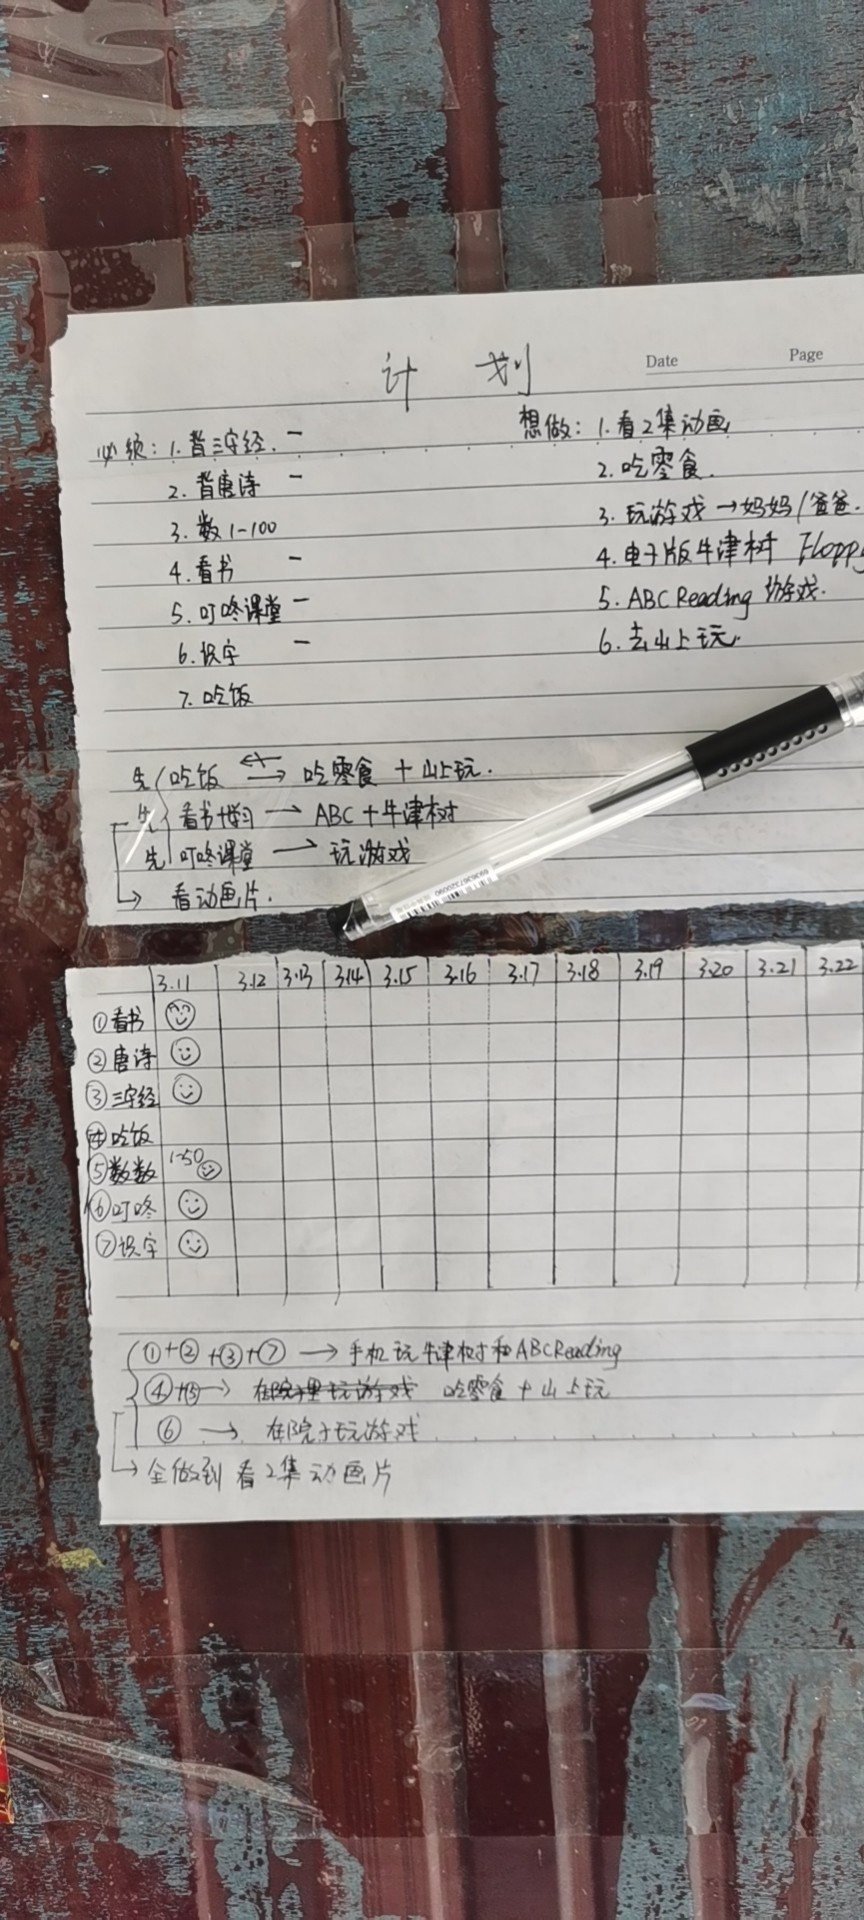 计 划
Date Page
必须：1.背三字经. —
2.背唐诗 —
3.数1-100
4.看书 —
5.叮咚课堂 —
6.识字 —
7.吃饭
想做：1.看2集动画
2.吃零食.
3.玩游戏→妈妈/爸爸.
4.电子版牛津树 Floppy
5.ABC Reading 游戏.
6.去山上玩.
先 吃饭 → 吃零食 + 山上玩.
先 看书 → ABC+牛津树
先 叮咚课堂 → 玩游戏
看动画片.
3.11 3.12 3.13 3.14 3.15 3.16 3.17 3.18 3.19 3.20 3.21 3.22
①看书
②唐诗
③三字经
④吃饭
⑤数数 1-50
⑥叮咚
⑦识字
①+②+③+⑦ → 手机玩牛津树和ABC Reading
④+⑤→ 在院子里玩游戏 吃零食+山上玩
⑥ → 在院子玩游戏
全做到看2集动画片